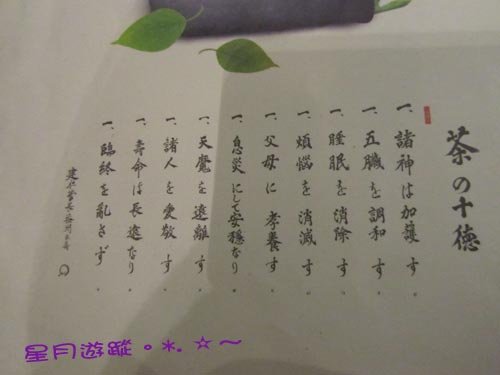 茶の十徳
一、諸神は加護す。
一、五臓を調和す。
一、睡眠を消除す。
一、煩悩を消滅す。
一、父母に孝養す。
一、息災にして安穏なり。
一、天魔を遠離す。
一、諸人を愛敬す。
一、寿命は長遠なり。
一、臨終を乱さず。
星月遊蹤。*. ☆～